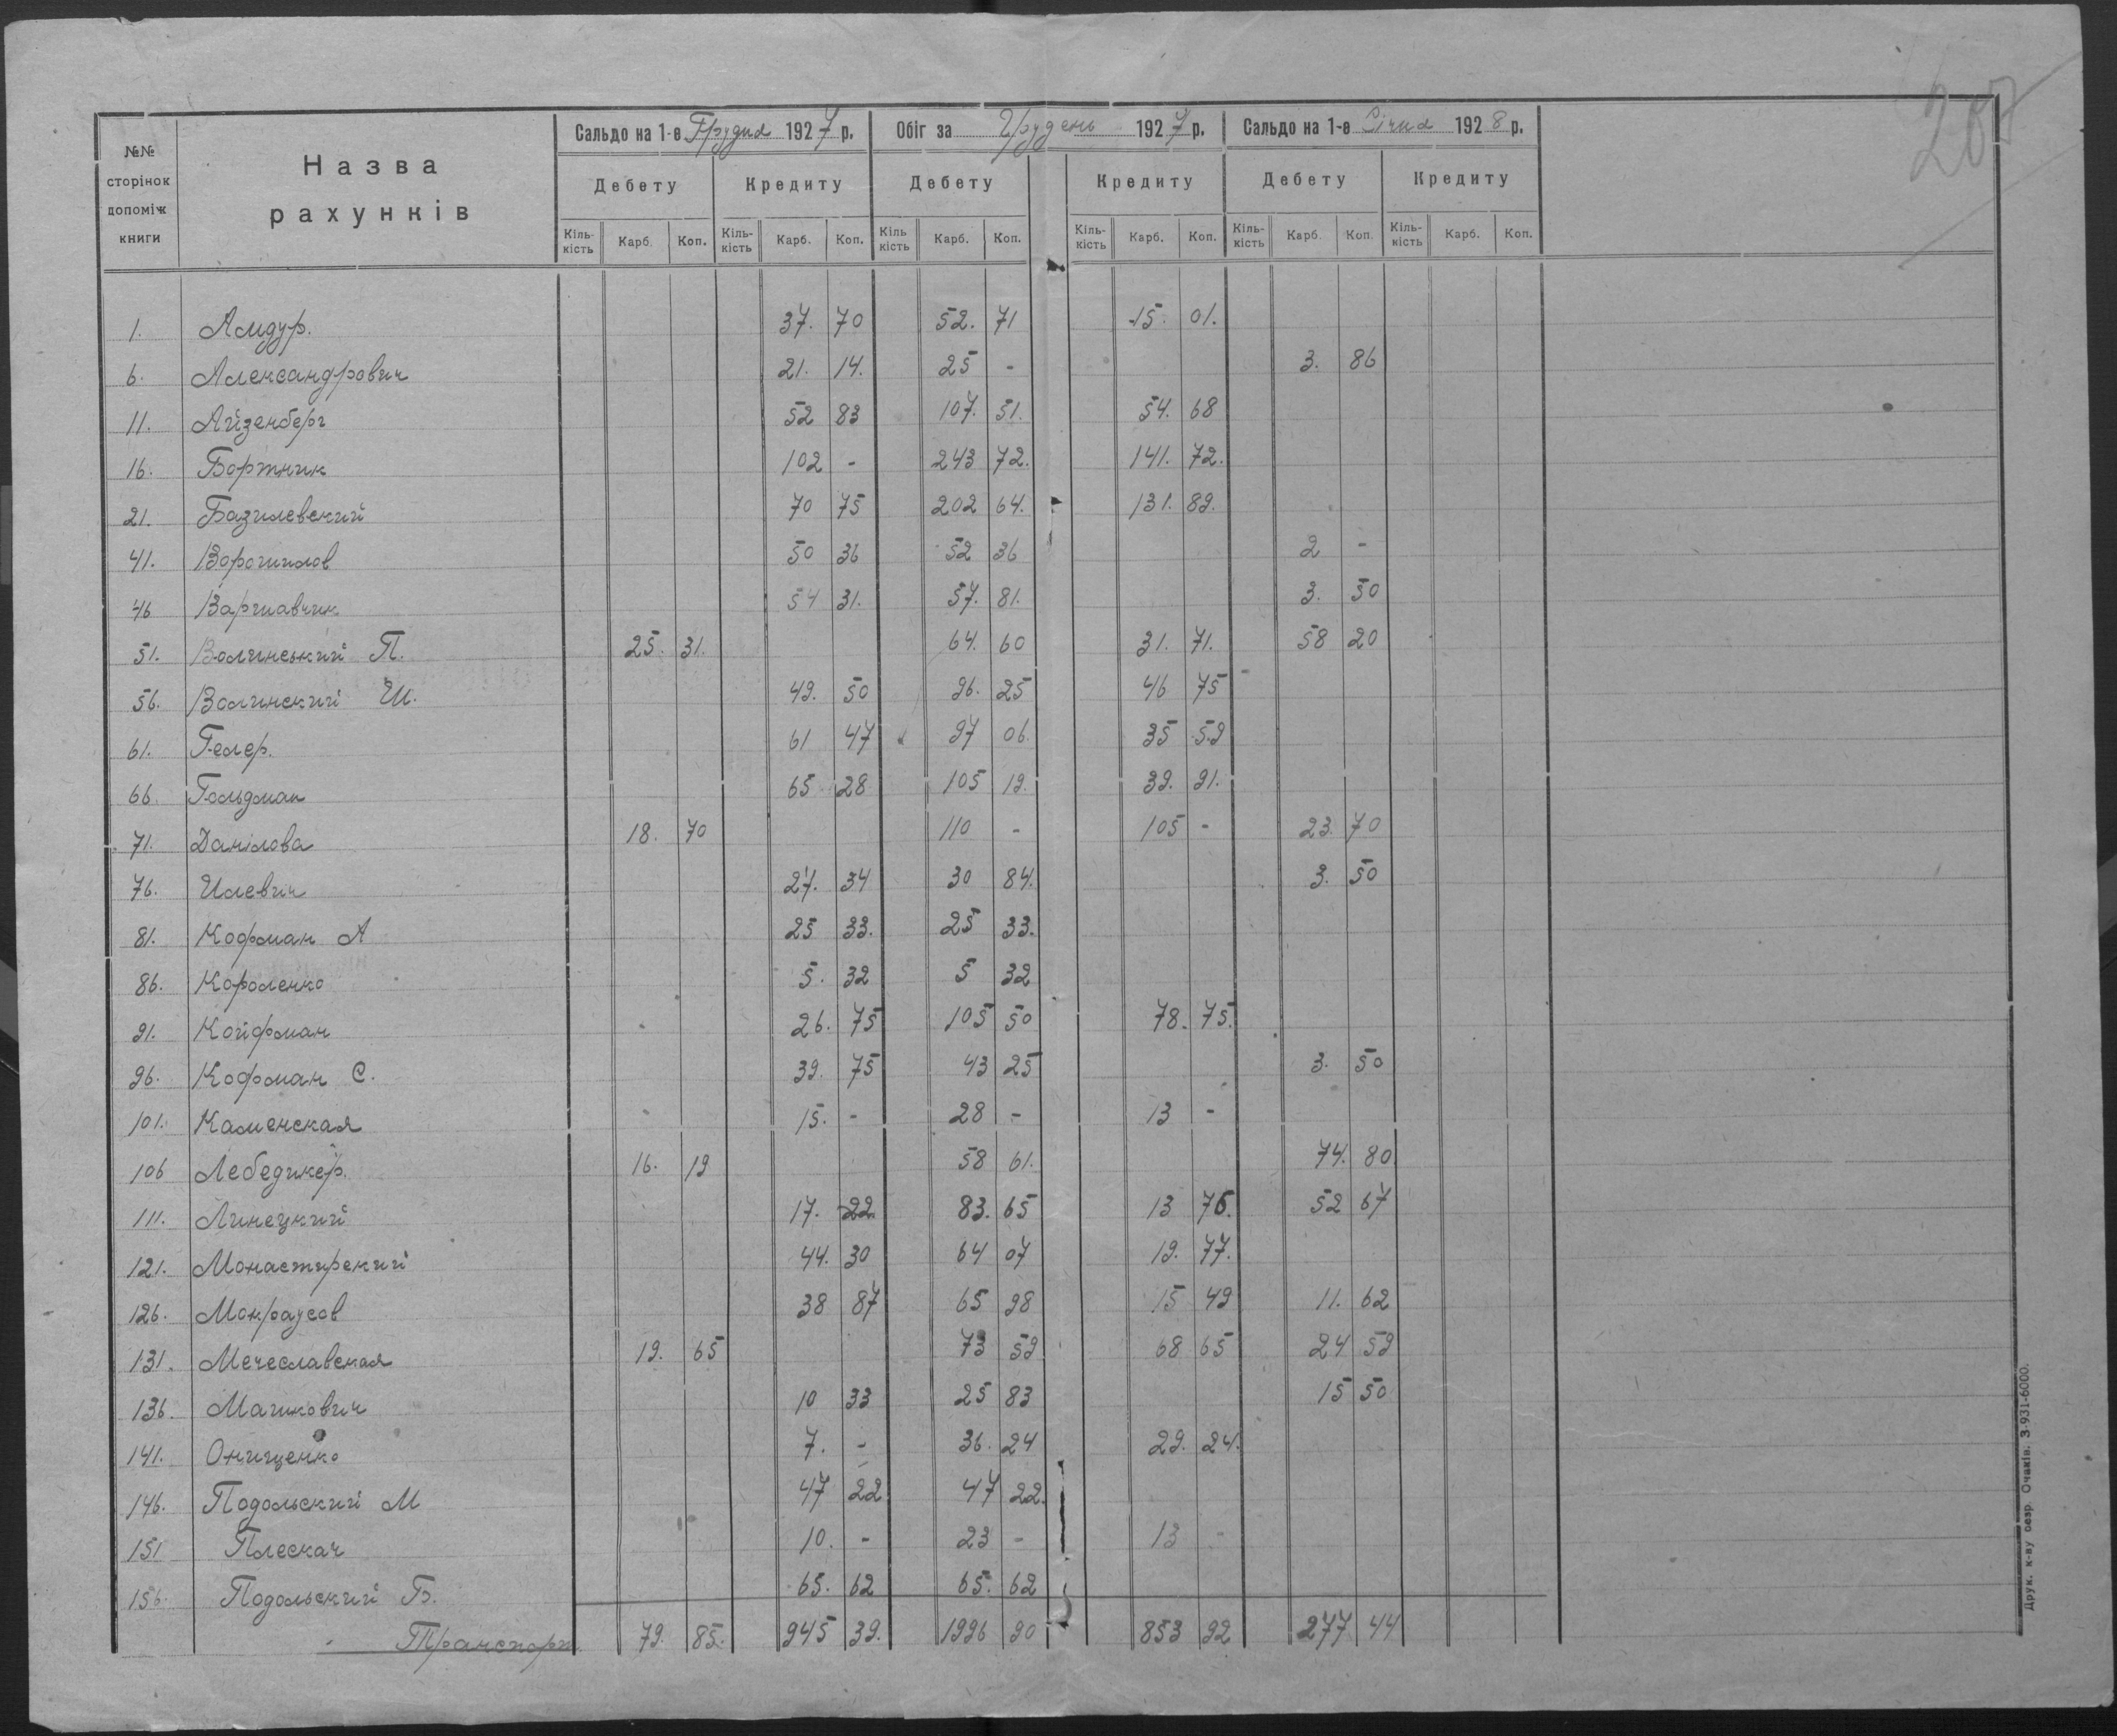 207
№№ сторінок допоміж книги
Назва рахунків
Сальдо на 1-е Грудня 1927 р.
Обіг за Грудень 1927 р.
Сальдо на 1-е Січня 1928 р.
Дебету Кредиту Дебету Кредиту Дебету Кредиту
Кіль-кість Карб. Коп. Кіль-кість Карб. Коп. Кіль кість Карб. Коп. Кіль-кість Карб. Коп. Кіль-кість Карб. Коп. Кіль-кість Карб. Коп.
1. Амдур. 37. 70 52. 71 15. 01.
6. Александрович 21. 14. 25 - 3. 86
11. Айзенберг 52 83 107. 51. 54. 68
16. Бортник 102 - 243 72. 141. 72.
21. Базилевский 70 75 202 64. 131. 89.
41. Ворошилов 50 36 52 36 2 -
46 Варшавчик 54 31. 57. 81. 3. 50
51. Волинський П. 25. 31. 64. 60 31. 71. 58 20
56. Волинский Ш. 49. 50 96. 25 46 75
61. Гелер. 61 47 97 06. 35 59
66. Гольдман 65 28 105 19. 39. 91.
71. Данілова 18. 70 110 - 105 - 23. 70
76. Илевич 27. 34 30 84. 3. 50
81. Кофман А 25 33. 25 33.
86. Короленко 5. 32 5 32
91. Койфман 26. 75 105 50 78. 75.
96. Кофман С. 39. 75 43 25 3. 50
101. Каменская 15. - 28 - 13 -
106 Лебедикер. 16. 19 58 61. 74. 80
111. Линецкий 17. 22 83. 65 13 76. 52 67
121. Монастирский 44. 30 64 07 19. 77.
126. Мокраусов 38 87 65 98 15 49 11. 62
131. Мечеславская 19. 65 73 59 68 65 24 59
136. Машкович 10 33 25 83 15 50
141. Онищенко 7. - 36. 24 29. 24.
146. Подольский М 47 22 47 22.
151 Плескач 10. - 23 - 13 -
156. Подольский Б. 65. 62 65. 62
Транспорт. 79. 85. 945 39. 1996 90 853 92 277 44
Друк. к-ву оезр. Очаків. З-931-6000.